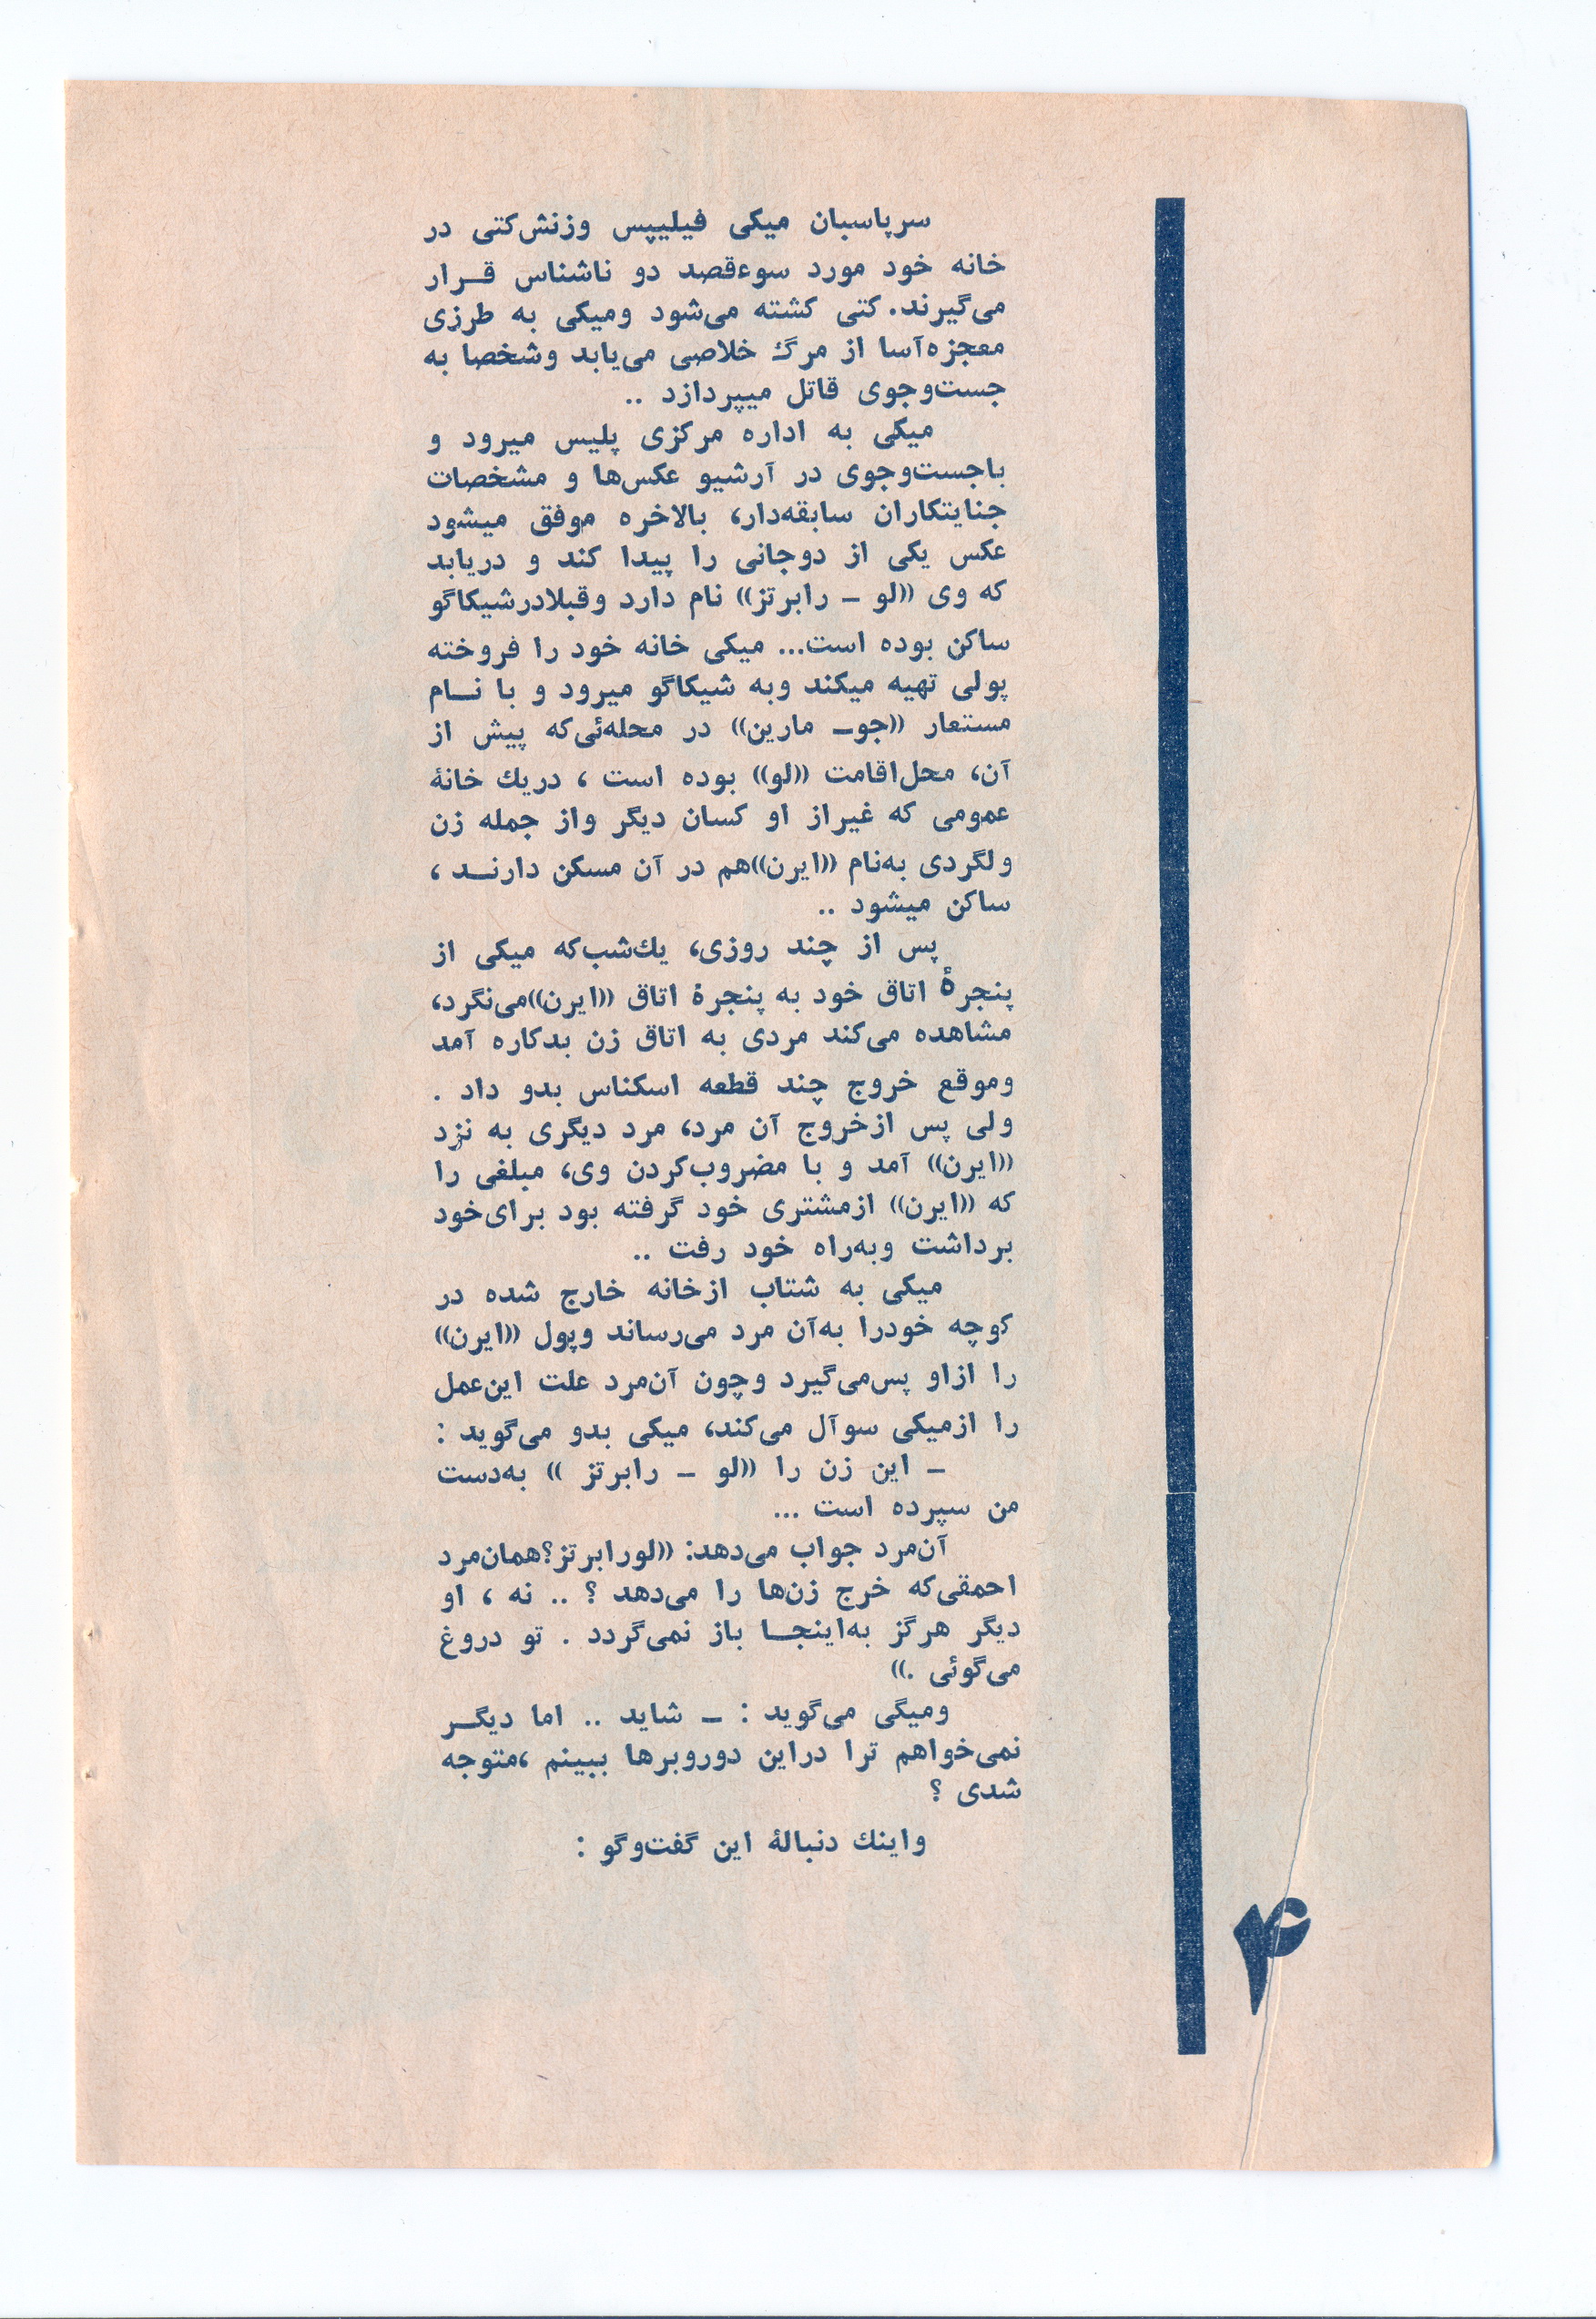 سرپاسبان میکی فیلیپس وزنش‌کتی در
خانه خود مورد سوءقصد دو ناشناس قـرار
می‌گیرند. کتی کشته می‌شود ومیکی به طرزی
معجزه‌آسا از مرگ خلاصی می‌یابد وشخصا به
جست‌وجوی قاتل میپردازد ..
میکی به اداره مرکزی پلیس میرود و
باجست‌وجوی در آرشیو عکس‌ها و مشخصات
جنایتکاران سابقه‌دار، بالاخره موفق میشود
عکس یکی از دوجانی را پیدا کند و دریابد
که وی «لو ـ رابرتز» نام دارد وقبلادرشیکاگو
ساکن بوده است... میکی خانه خود را فروخته
پولی تهیه میکند وبه شیکاگو میرود و با نـام
مستعار «جوـ مارین» در محله‌ئی‌که پیش از
آن، محل‌اقامت «لو» بوده است ، دریك خانۀ
عمومی که غیراز او کسان دیگر واز جمله زن
ولگردی به‌نام «ایرن»هم در آن مسکن دارنـد ،
ساکن میشود ..
پس از چند روزی، یك‌شب‌که میکی از
پنجرۀ اتاق خود به پنجرۀ اتاق «ایرن»می‌نگرد،
مشاهده می‌کند مردی به اتاق زن بدکاره آمد
وموقع خروج چند قطعه اسکناس بدو داد .
ولی پس ازخروج آن مرد، مرد دیگری به نزد
«ایرن» آمد و با مضروب‌کردن وی، مبلغی را
که «ایرن» ازمشتری خود گرفته بود برای‌خود
برداشت وبه‌راه خود رفت ..
میکی به شتاب ازخانه خارج شده در
کوچه خودرا به‌آن مرد می‌رساند وپول «ایرن»
را ازاو پس‌می‌گیرد وچون آن‌مرد علت این‌عمل
را ازمیکی سوآل می‌کند، میکی بدو می‌گوید :
ـ این زن را «لو ـ رابرتز » به‌دست
من سپرده است ...
آن‌مرد جواب می‌دهد: «لورابرتز؟همان‌مرد
احمقی‌که خرج زن‌ها را می‌دهد ؟ .. نه ، او
دیگر هرگز به‌اینجـا باز نمی‌گردد . تو دروغ
می‌گوئی .»
ومیگی می‌گوید : ـ شاید .. اما دیگـر
نمی‌خواهم ترا دراین دوروبرها ببینم ،متوجه
شدی ؟
واینك دنبالۀ این گفت‌وگو :
۴